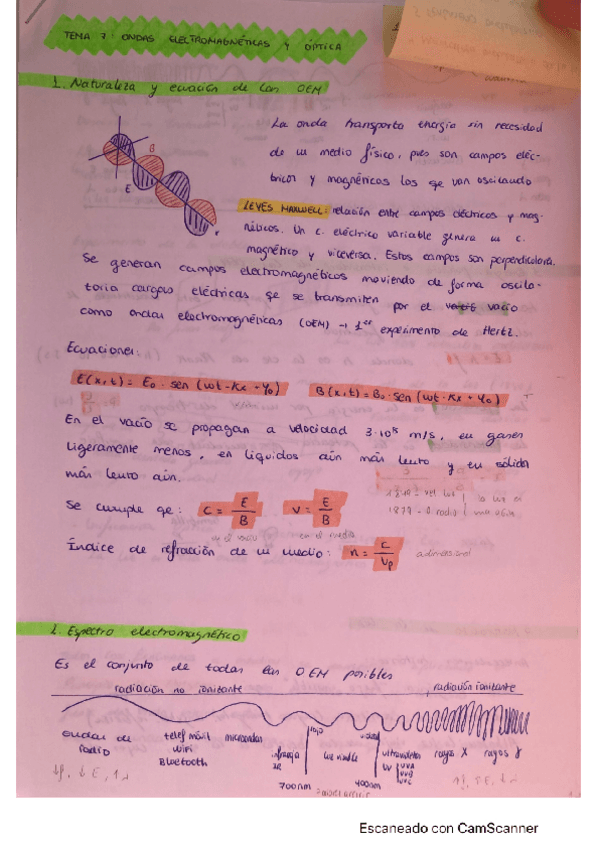 TEMA 7: ONDAS ELECTROMAGNÉTICAS Y ÓPTICA
1. Naturaleza y ecuación de las OEM
La onda transporta energía sin necesidad
de un medio físico, pues son campos eléc-
tricos y magnéticos los qe van oscilando
B
E
LEYES MAXWELL: relación entre campos eléctricos y mag-
néticos. Un c. eléctrico variable genera un c.
magnético y viceversa. Estos campos son perpendiculares.
Se generan campos electromagnéticos moviendo de forma oscila-
toria cargas eléctricas qe se transmiten por el vacío
como ondas electromagnéticas (OEM) → 1er experimento de Hertz.
Ecuaciones:
E(x,t) = E₀ · sen (ωt - Kx + φ₀)
B(x,t) = B₀ · sen (ωt - Kx + φ₀)
En el vacío se propagan a velocidad 3·10⁸ m/s, en gases
ligeramente menos, en líquidos aún más lento y en sólidos
más lento aún.
Se cumple qe: c = E/B v = E/B
en el vacío en el medio
Índice de refracción de un medio: n = c/vp adimensional
2. Espectro electromagnético
Es el conjunto de todas las OEM posibles
radiación no ionitante radiación ionitante
ondas de radio
telef móvil
wifi
Bluetooth
microondas
infrarroja
rojo
luz visible
violeta
ultravioleta
UV
UVA
UVB
UVC
rayos X
rayos γ
700nm
400nm
Escaneado con CamScanner